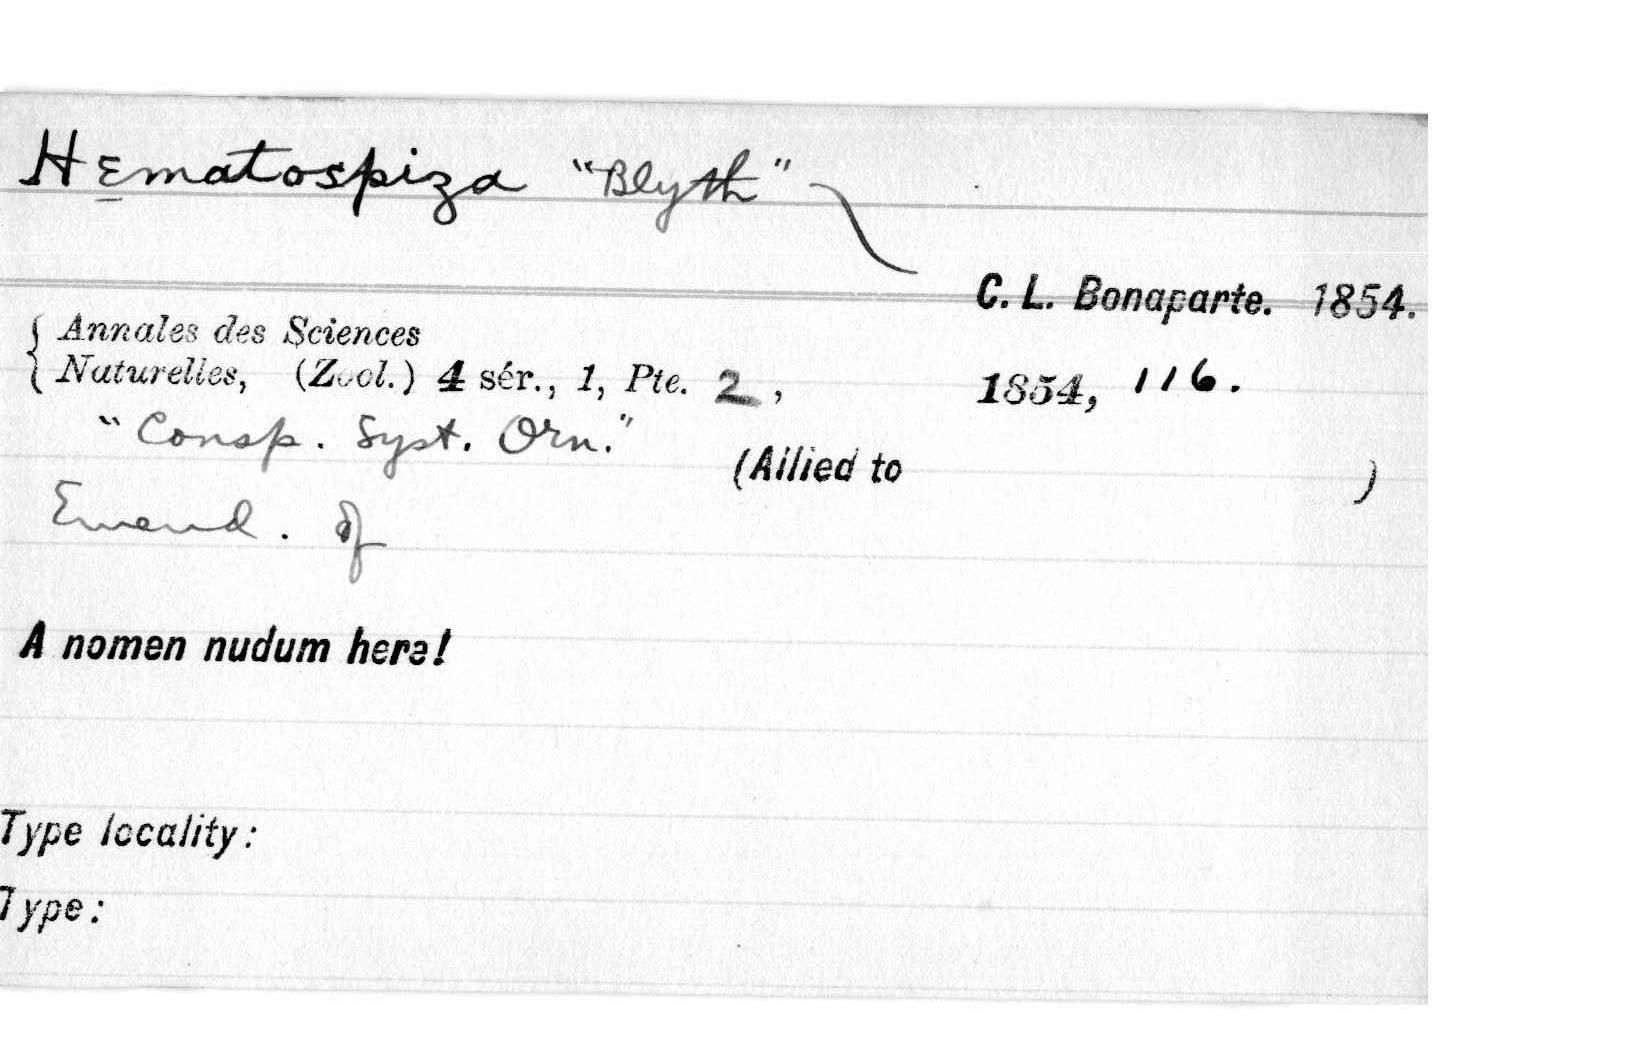 Hematospiza "Blyth"
C. L. Bonaparte. 1854.
Annales des Sciences
Naturelles, (Zool.) 4 sér., 1, Pte. 2, 1854, 116.
"Consp. Syst. Orn."
(Allied to )
Emend. of
A nomen nudum here!
Type locality:
Type: